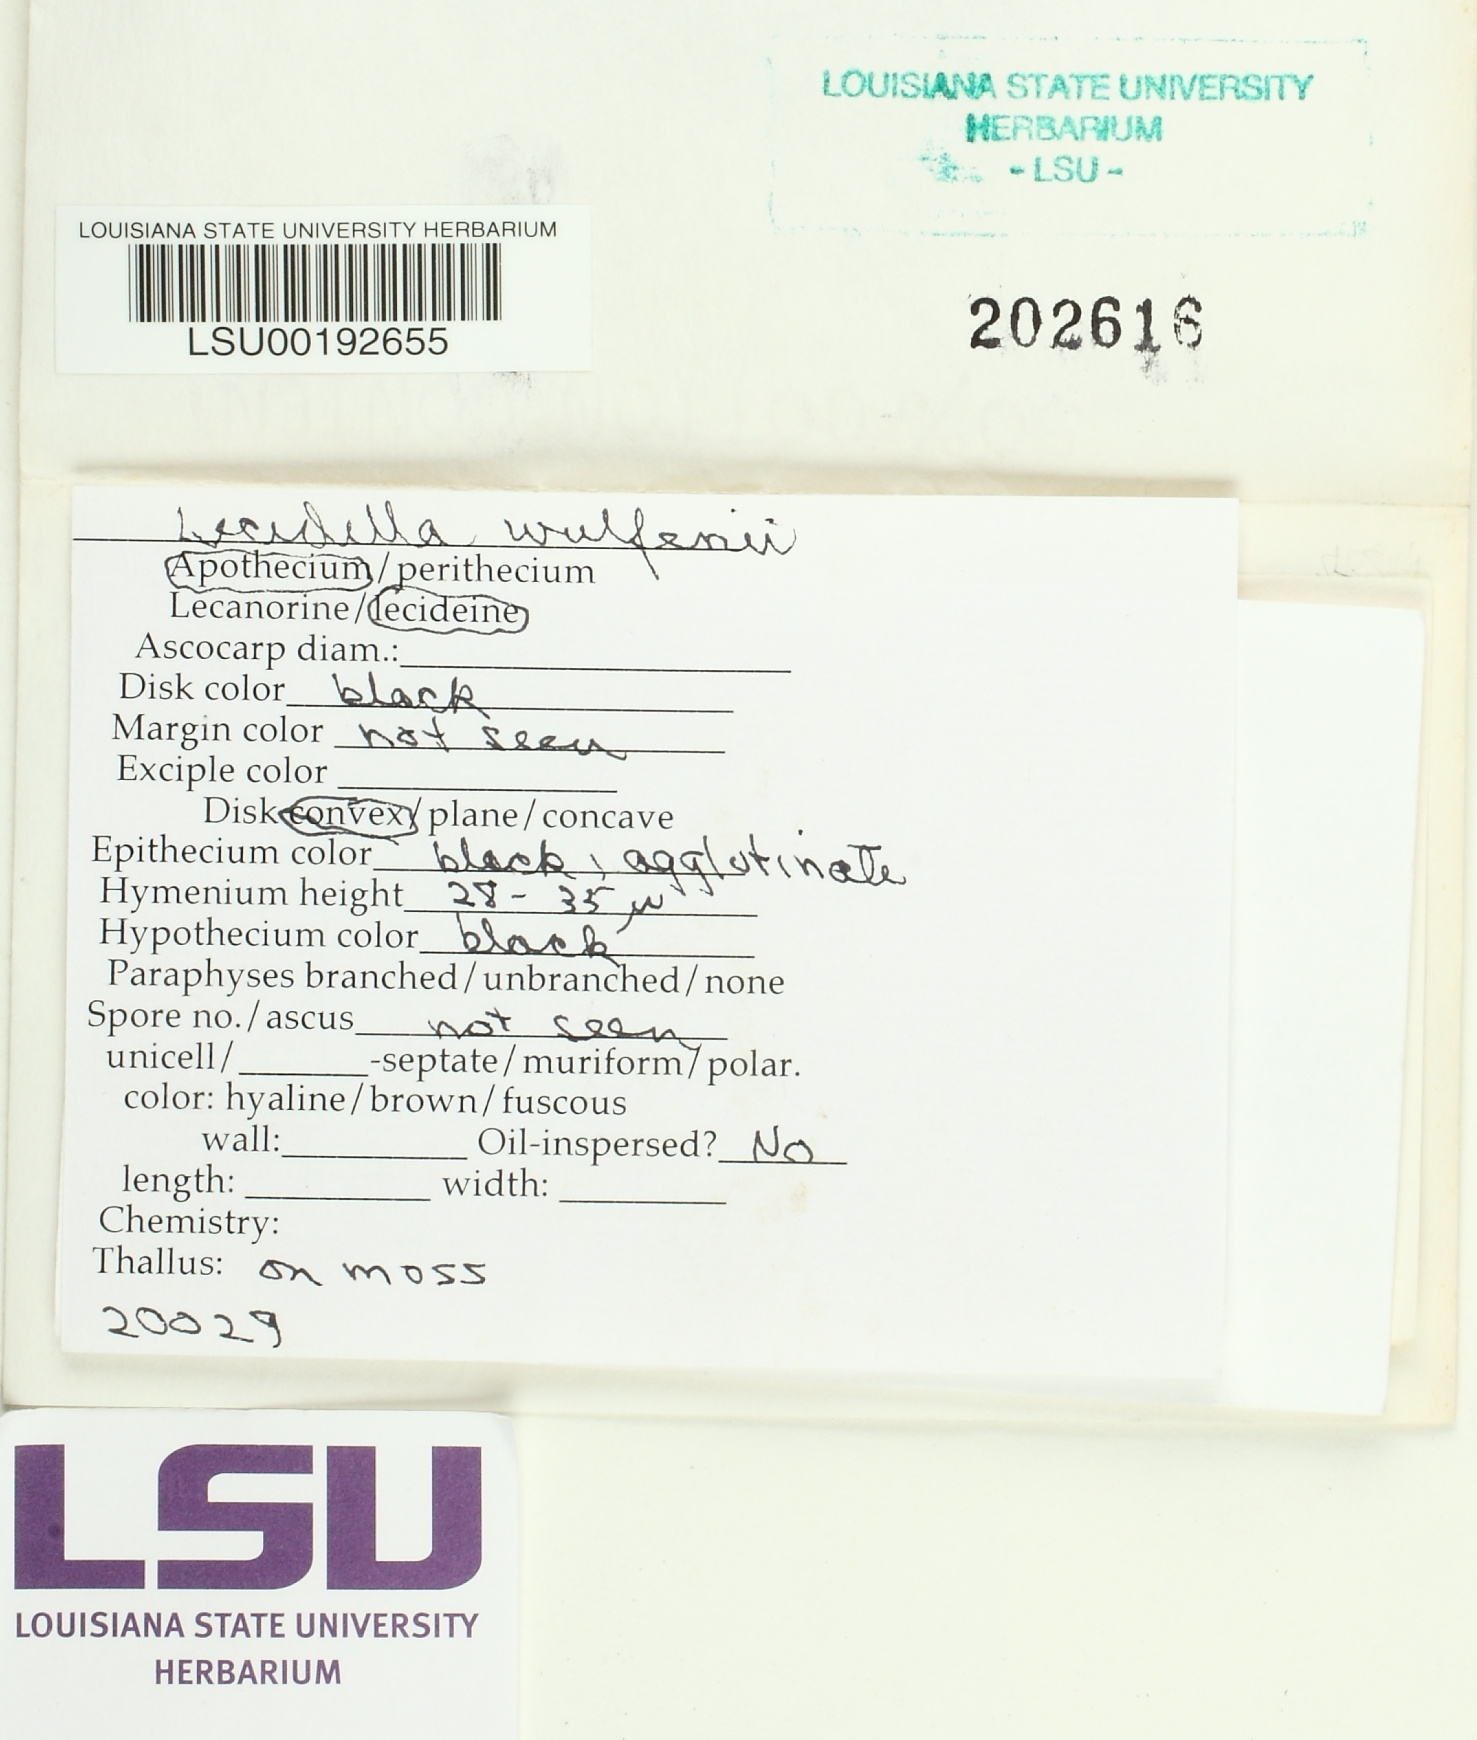 LOUISIANA STATE UNIVERSITY
HERBARIUM
- LSU -
LOUISIANA STATE UNIVERSITY HERBARIUM
LSU00192655
202616
Lecidella wulfenii
Apothecium/perithecium
Lecanorine/lecideine
Ascocarp diam.:
Disk color black
Margin color not seen
Exciple color
Disk convex/plane/concave
Epithecium color black, agglutinate
Hymenium height 28-35 µ
Hypothecium color black
Paraphyses branched/unbranched/none
Spore no./ascus not seen
unicell/______-septate/muriform/polar.
color: hyaline/brown/fuscous
wall:__________ Oil-inspersed? No
length: __________ width: _________
Chemistry:
Thallus: on moss
20029
LSU
LOUISIANA STATE UNIVERSITY
HERBARIUM